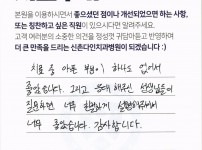 본원을 이용하시면서 좋으셨던 점이나 개선되었으면 하는 사항,
또는 칭찬하고 싶은 직원이 있으시다면 알려주세요.
고객 여러분의 소중한 의견을 정성껏 귀담아듣고 반영하여
더 큰 만족을 드리는 신촌다인치과병원이 되겠습니다 :)
치료 중 아픈 부분이 하나도 없어서
좋았습니다. 그리고 응대 해주신 선생님들이
질문하면 너무 친절하게 설명해주셔서
너무 좋았습니다. 감사합니다.